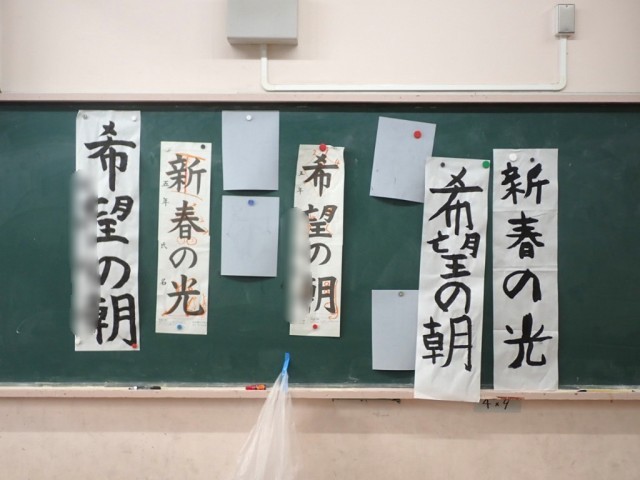 希望の朝
新春の光
五年 氏名
希望の朝
希望の朝
新春の光